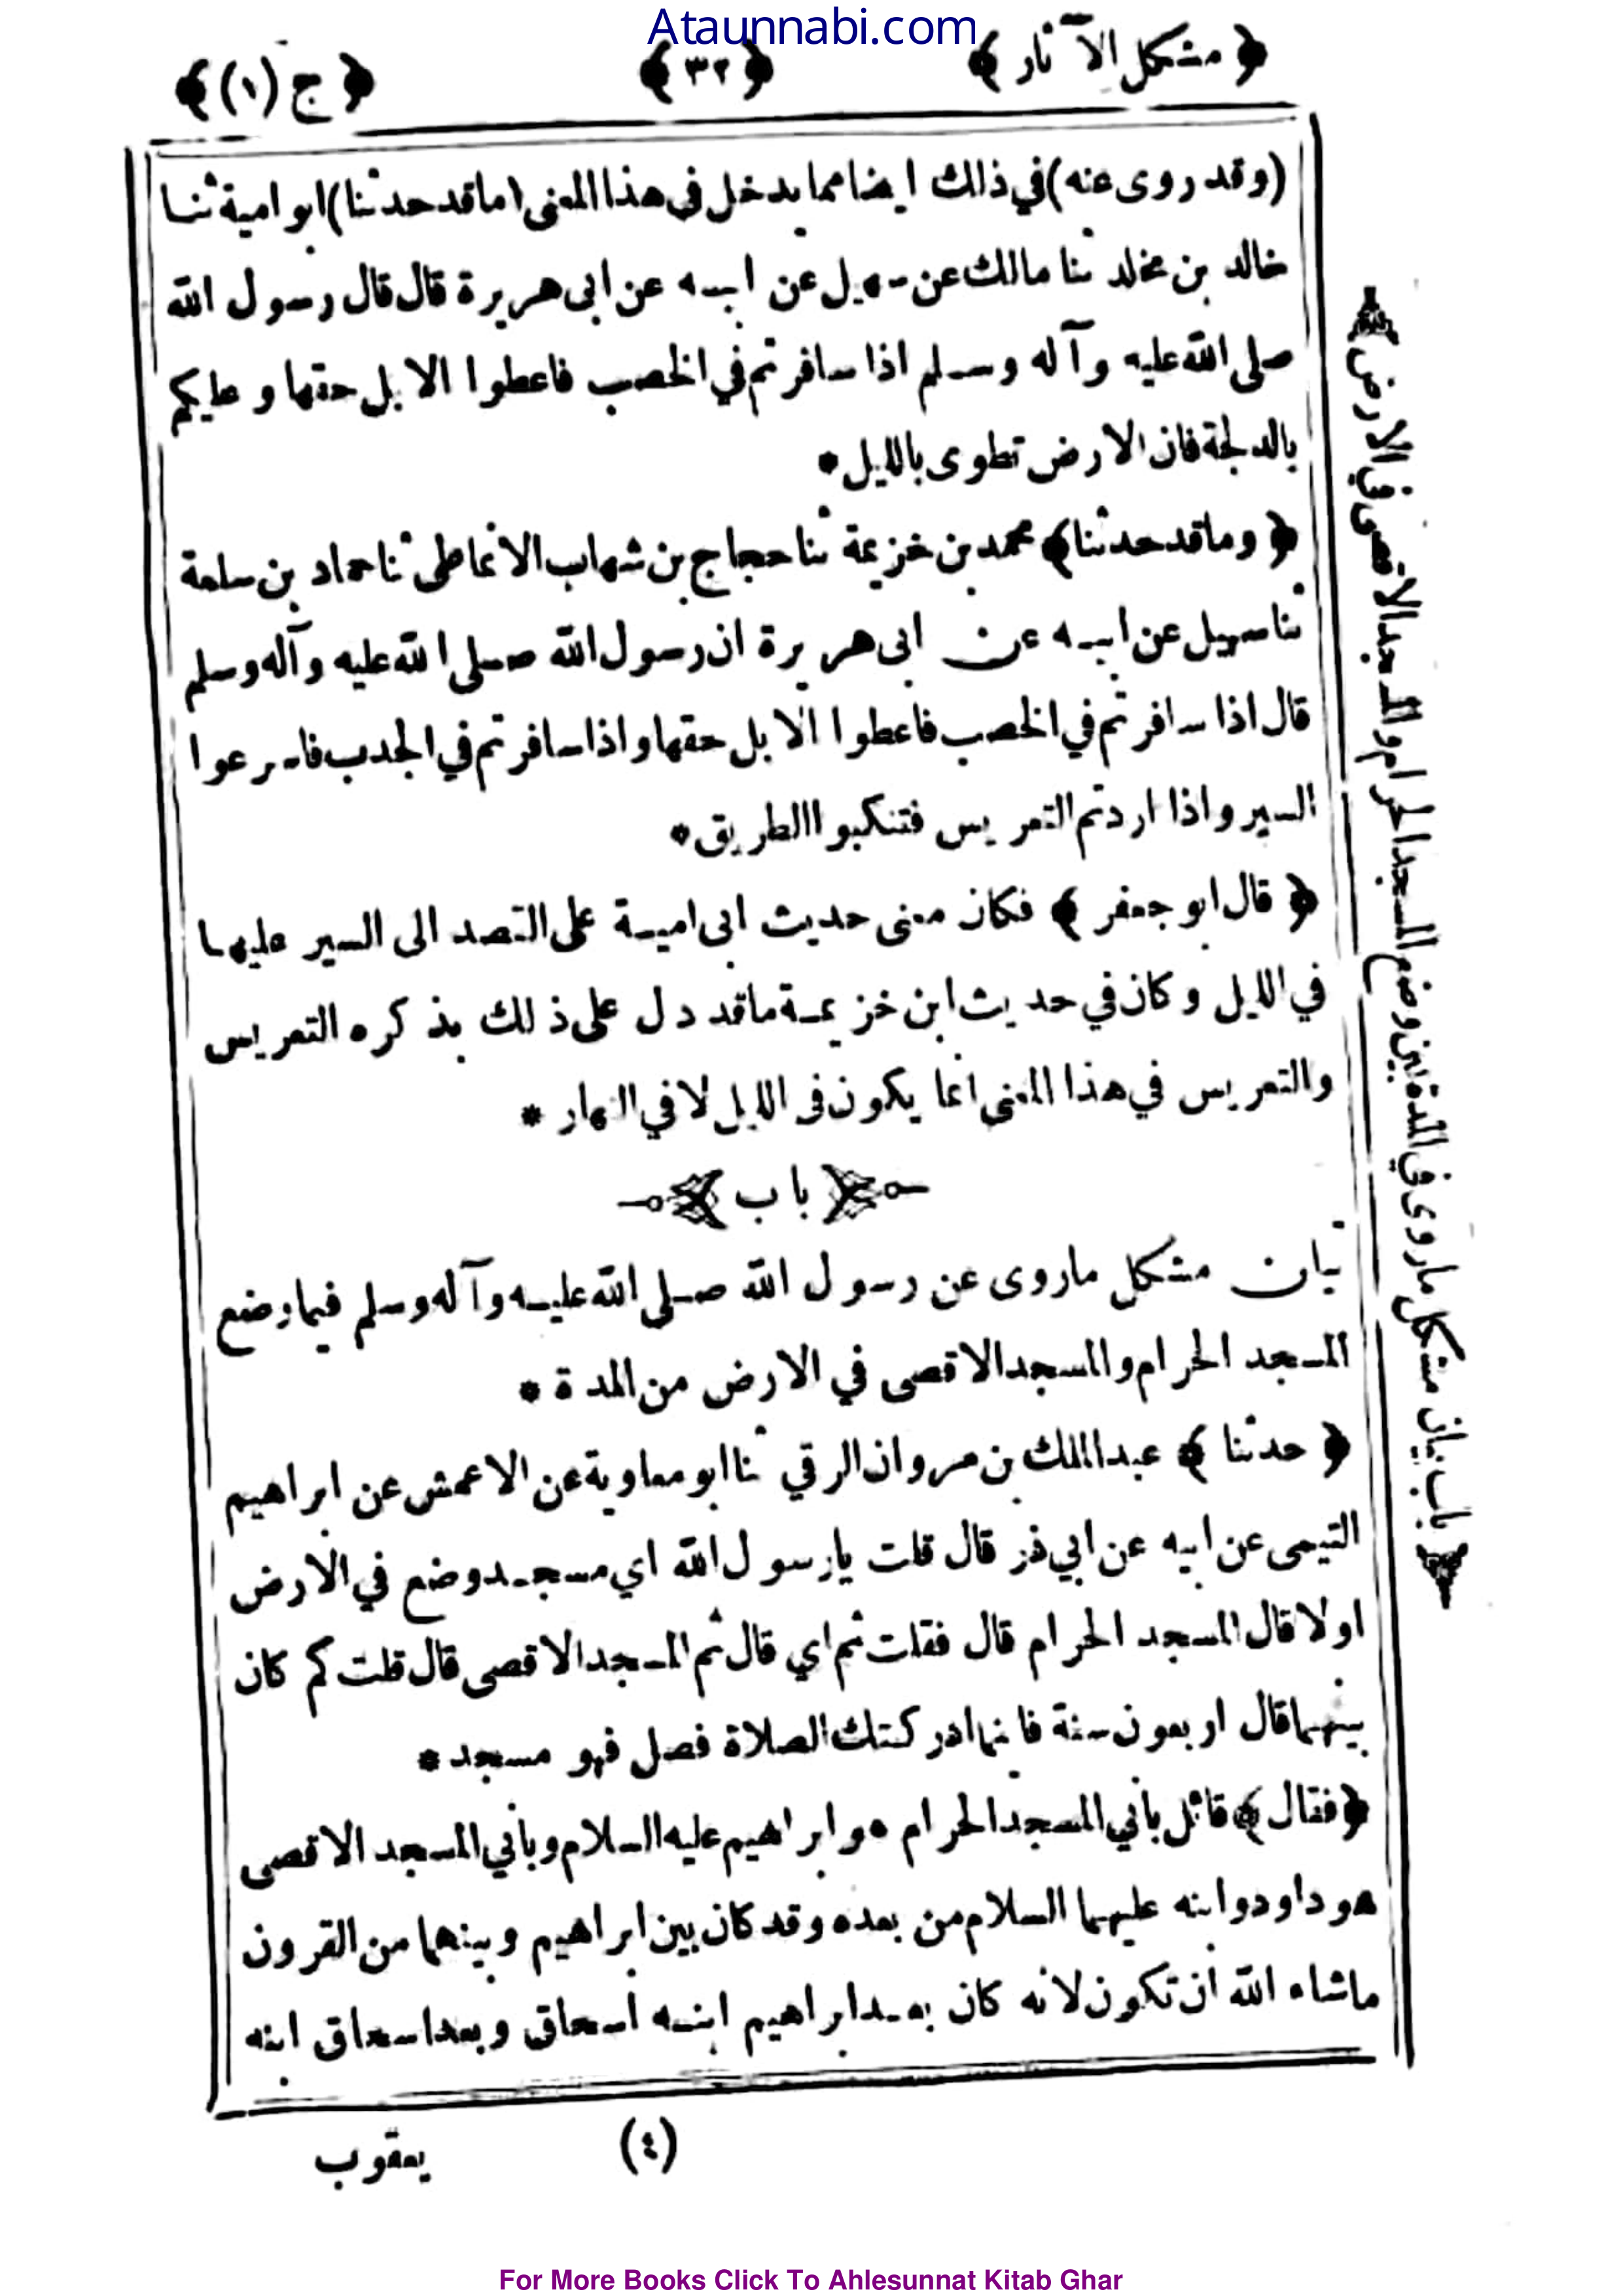 Ataunnabi.com
﴿ مشكل الآثار ﴾ ﴿ ٣٢ ﴾ ﴿ ج (١) ﴾
(وقد روى عنه) في ذلك ايضا مما يدخل في هذا المعنى (ما قد حدثنا) ابو امية ثنا
خالد بن مخلد ثنا مالك عن سهيل عن ابيه عن ابى هريرة قال قال رسول الله
صلى الله عليه وآله وسلم اذا سافرتم في الخصب فاعطوا الابل حقها وعليكم
بالدلجة فان الارض تطوى بالليل *
﴿ وما قد حدثنا ﴾ محمد بن خزيمة ثنا حجاج بن شهاب الانماطى ثنا حماد بن سلمة
ثنا سهيل عن ابيه عن ابى هريرة ان رسول الله صلى الله عليه وآله وسلم
قال اذا سافرتم في الخصب فاعطوا الابل حقها واذا سافرتم في الجدب فاسرعوا
السير واذا اردتم التعريس فتنكبوا الطريق *
﴿ قال ابو جعفر ﴾ فكان معنى حديث ابى امية على القصد الى السير عليها
في الليل وكان في حديث ابن خزيمة ما قد دل على ذلك بذكره التعريس
والتعريس في هذا المعنى انما يكون فى الليل لا في النهار *
﴿ باب ﴾
بيان مشكل ماروى عن رسول الله صلى الله عليه وآله وسلم فيما وضع
المسجد الحرام والمسجد الاقصى في الارض من المدة *
﴿ حدثنا ﴾ عبد الملك بن مروان الرقي ثنا ابو معاوية عن الاعمش عن ابراهيم
التيمى عن ابيه عن ابي ذر قال قلت يا رسول الله اي مسجد وضع في الارض
اولا قال المسجد الحرام قال فقلت ثم اي قال ثم المسجد الاقصى قال قلت كم كان
بينهما قال اربعون سنة فاينما ادركتك الصلاة فصل فهو مسجد *
﴿ فقال ﴾ قائل باني المسجد الحرام هو ابراهيم عليه السلام وباني المسجد الاقصى
هو داود وابنه عليهما السلام من بعده وقد كان بين ابراهيم وبينهما من القرون
ماشاء الله ان تكون لانه كان بعد ابراهيم ابنه اسحاق وبعد اسحاق ابنه
(٤) يعقوب
﴿ باب بيان مشكل ماروى في المدة بين وضع المسجد الحرام والمسجد الاقصى في الارض ﴾
For More Books Click To Ahlesunnat Kitab Ghar